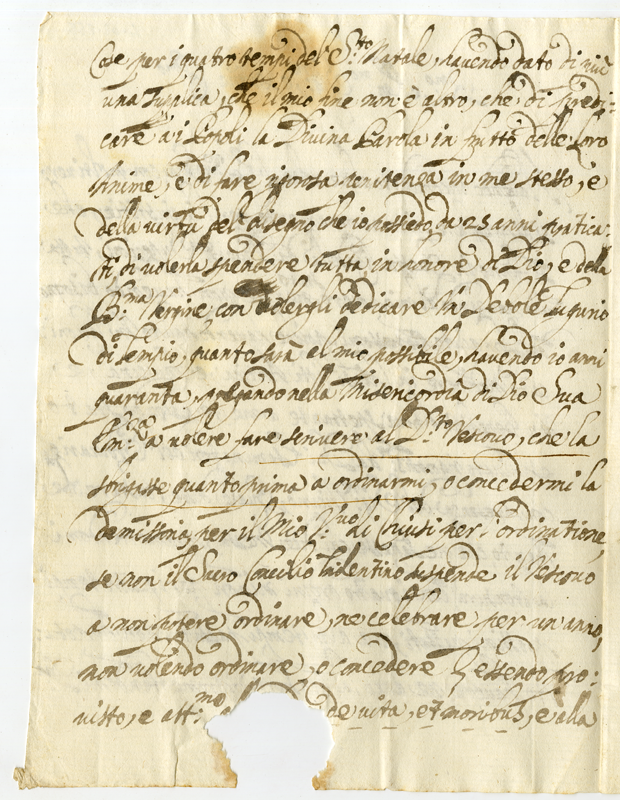 Cose per i quatro tempi del S.to Natale, havendo dato di più
una supplica, che il mio fine non è altro, che di predi=
care a i Popoli la Divina Parola in frutto delle Loro
Anime, e di fare rigorosa penitenza in me stesso, e
della virtù del disegno che io possiedo, da 25 anni pratica-
ti di volerla spendere tutta in honore di Dio, e della
B.ma Vergine con volergli dedicare Un Devole Tugurio
di Tempio, quanto sarà al mio possibile, havendo io anni
quaranta, pregando nella Misericordia di Dio Sua
a volere fare scrivere al D.to Vescovo, che la
sbrigasse quanto prima a ordinarmi, o concedermi la
demissoria, per il Mio di Chiusi per l'ordinatione,
se non il Sacro Concilio Tridentino suspende il Vescovo
a non potere ordinare, ne celebrare per un anno,
non volendo ordinare, o concedere essendo pro=
visto, e att.mo de vita, et moribus, e alla